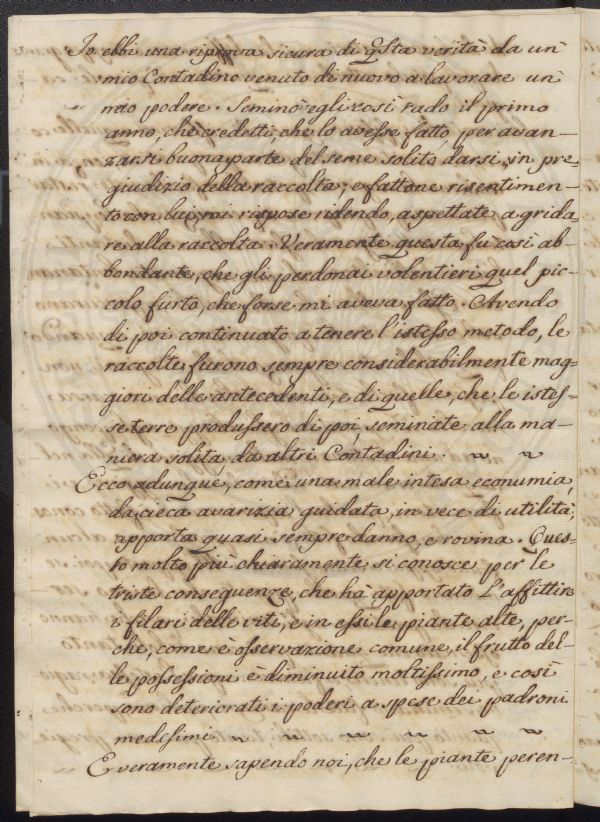 Io ebbi una riprova sicura di qsta verità da un
mio Contadino venuto di nuovo a lavorare un
mio podere. Seminò egli così rado il primo
anno, che credetti, che lo avesse fatto, per avan=
zarsi buona parte del seme solito darsi in pre=
giudizio della raccolta; e fattone risentimen=
to con lui, mi rispose ridendo, aspettate a grida=
re alla raccolta. Veramente questa fù così ab=
bondante, che gli perdonai volentieri quel pic=
colo furto, che forse mi aveva fatto. Avendo
di poi continuato a tenere l'istesso metodo, le
raccolte furono sempre considerabilmente mag=
giori delle antecedenti, e di quelle, che le istes=
se terre produssero di poi, seminate alla ma=
niera solita da altri Contadini.
Ecco adunque, come una male intesa econumia,
da cieca avarizia guidata, in vece di utilità,
apporta quasi sempre danno, e rovina. Ques=
to molto più chiaramente si conosce per le
triste conseguenze, che hà apportato L'affittire
i filari delle viti, e in essi le piante alte, per=
che, come è osservazione comune, il frutto del=
le possessioni è diminuito moltissimo, e così
sono deteriorati i poderi a spese dei padroni
medesimi
E veramente sapendo noi, che le piante peren=